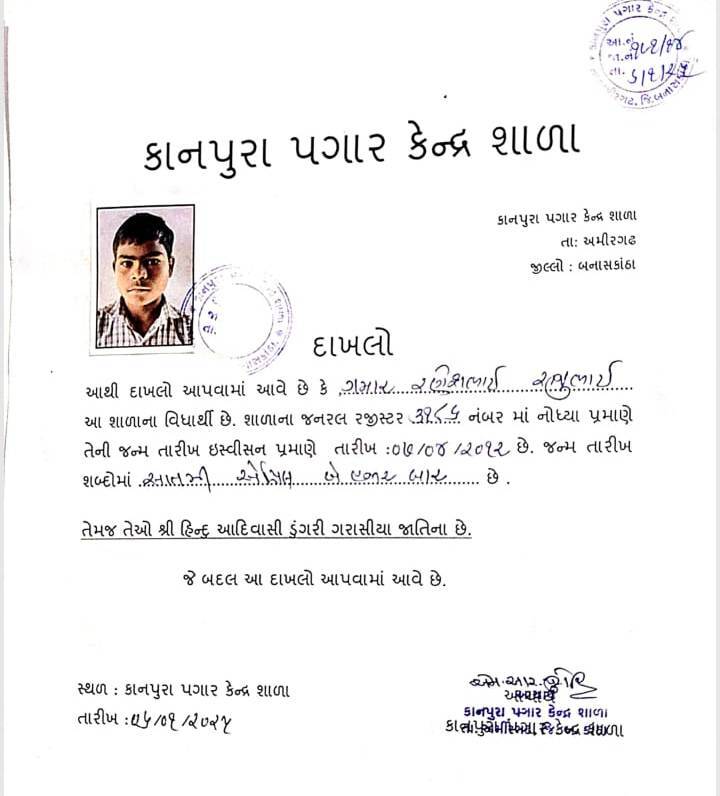 આ.નં
જા.નં ૧૮૧/૨૪
તા.
કાનપુરા પગાર કેન્દ્ર શાળા
કાનપુરા પગાર કેન્દ્ર શાળા
તા: અમીરગઢ
જીલ્લો : બનાસકાંઠા
દાખલો
આથી દાખલો આપવામાં આવે છે કે ગમાર રણેશભાઈ રજુભાઈ
આ શાળાના વિધાર્થી છે. શાળાના જનરલ રજીસ્ટર નંબર માં નોધ્યા પ્રમાણે
તેની જન્મ તારીખ ઇસ્વીસન પ્રમાણે તારીખ :૦૭/૦૪/૨૦૧૨ છે. જન્મ તારીખ
શબ્દોમાં સાતમી એપ્રિલ બે હજાર બાર છે .
તેમજ તેઓ શ્રી હિન્દુ આદિવાસી ડુંગરી ગરાસીયા જાતિના છે.
જે બદલ આ દાખલો આપવામાં આવે છે.
સ્થળ : કાનપુરા પગાર કેન્દ્ર શાળા
તારીખ :૦૬/૦૧/૨૦૨૫
એમ.આર.
આચાર્ય
કાનપુરા પગાર કેન્દ્ર શાળા